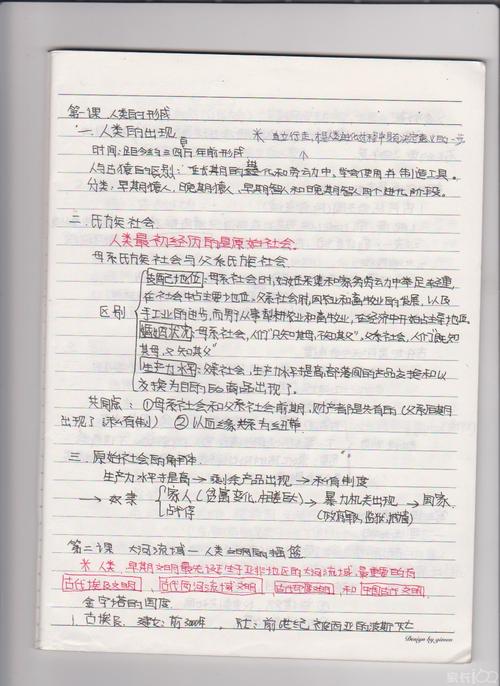 第一课 人类的形成
一. 人类的出现
※ 直立行走, 是人类进化过程中具有决定意义的一步
时间: 距今约三四百万年前形成
人与古猿的区别: 在长期的进化和劳动中, 学会使用并制造工具。
分类: 早期猿人、晚期猿人、早期智人和晚期智人四个进化阶段。
二. 氏族社会
人类最初经历的是原始社会.
母系氏族社会与父系氏族社会
区别
妇女在采集和家务劳动中举足轻重,
在社会中占主要地位。父系社会时, 因农业和畜牧业的发展, 以及
手工业的进步, 而男子从事耕种农业和畜牧业, 在经济中开始占主要地位。
婚姻状况: 母系社会, 人们"只知其母, 不知其父", 父系社会, 人们"既知
其母, 又知其父"
生产力水平: 父系社会, 生产力水平提高, 部落间的产品交换和以
交换为目的的商品出现了.
共同点: ①母系社会和父系社会前期, 财产都是共有的 (父系后期
出现了私有制) ②以血缘关系为纽带
三. 原始社会的解体
生产力水平提高→剩余产品出现→私有制度
→奴隶 家人 → 暴力机关出现 → 国家.
战俘
(政府, 军队, 监狱, 城墙)
第二课 大河流域 — 人类文明的摇篮
※ 人类早期文明最先诞生于亚非地区的大河流域, 最重要的有
古代埃及文明、古代两河流域文明、古代印度文明、和中国古代文明.
金字塔的国度
1. 古埃及. 建: 前3000年, 亡: 前6世纪 被西亚的波斯灭
Design by gimen
家长100